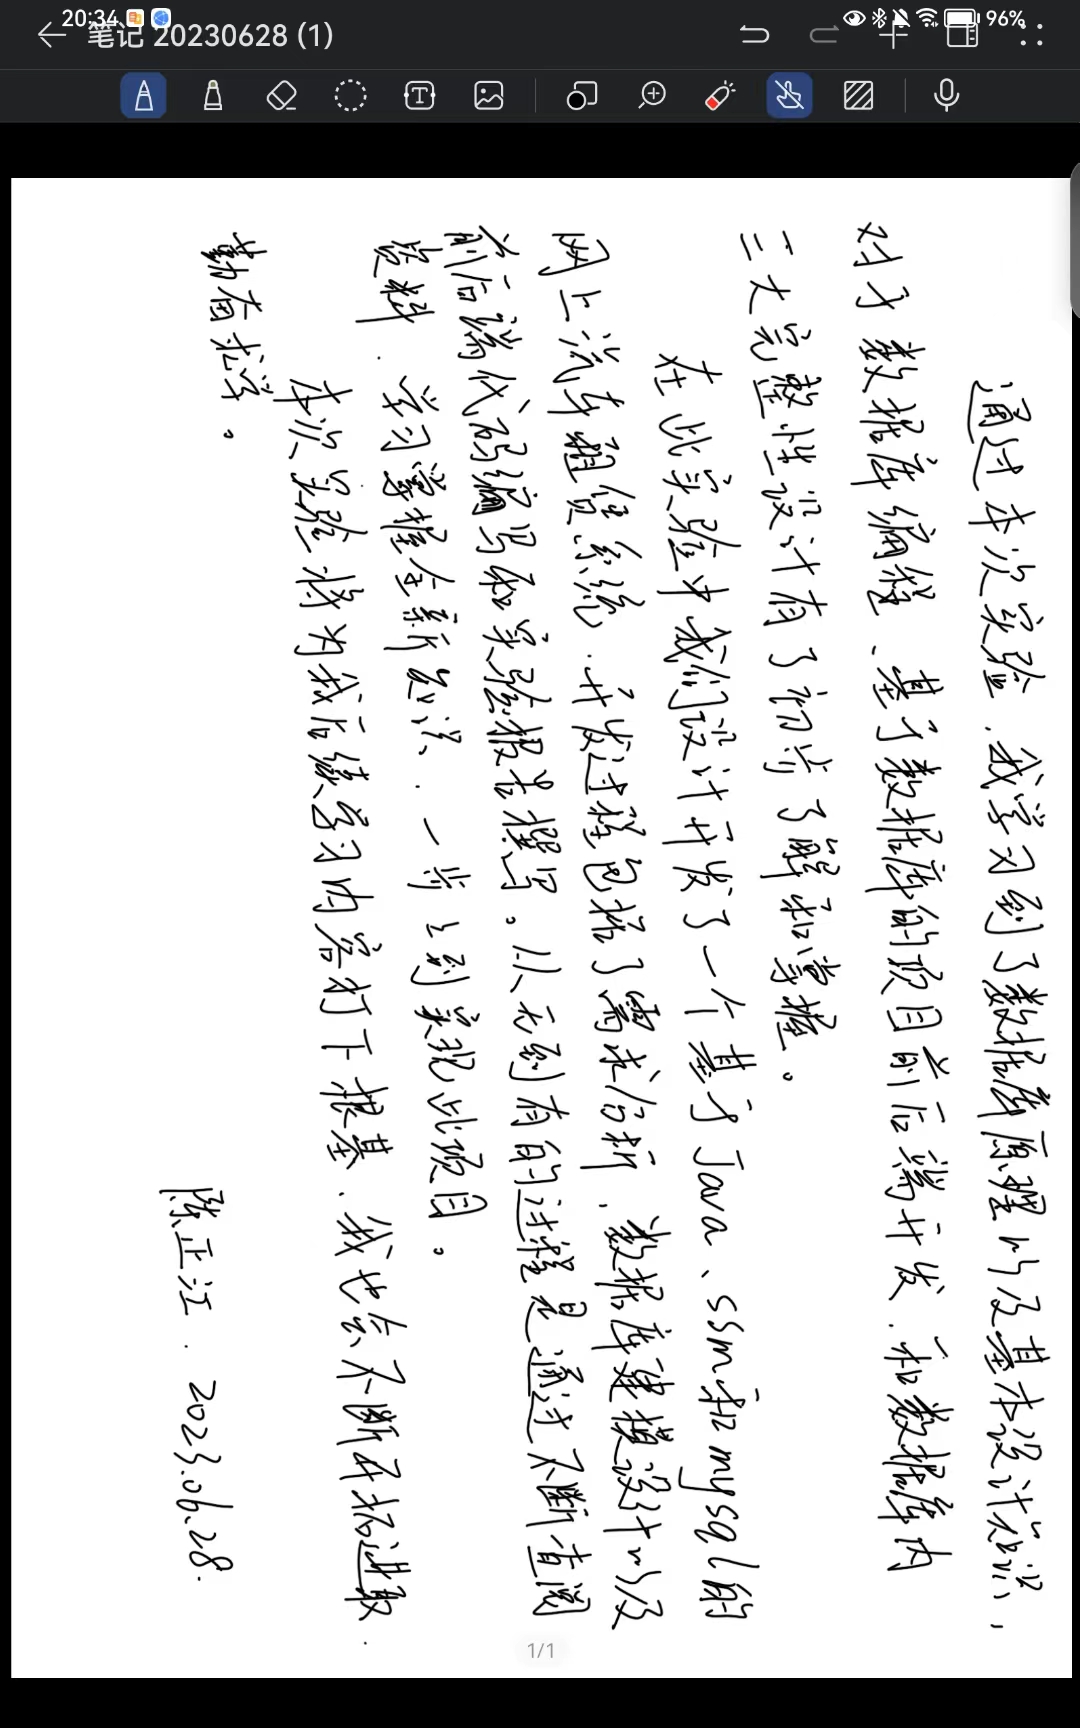 20:34
96%
笔记 20230628 (1)
通过本次实验，我学习到了数据库原理以及基本设计知识，
对于数据库编程、基于数据库的项目前后端开发，和数据库内
三大完整性设计有了初步了解和掌握。
在此实验中我们设计开发了一个基于Java、ssm和mysql的
网上汽车租赁系统，开发过程包括了需求分析，数据库建模设计以及
前后端代码编写和实验报告撰写。从无到有的过程是通过不断查阅
资料，学习掌握全新知识，一步步到实现此项目。
本次实验将为我后续学习内容打下根基，我也会不断开拓进取，
勤奋求学。
陈正江. 2023.06.28.
1/1